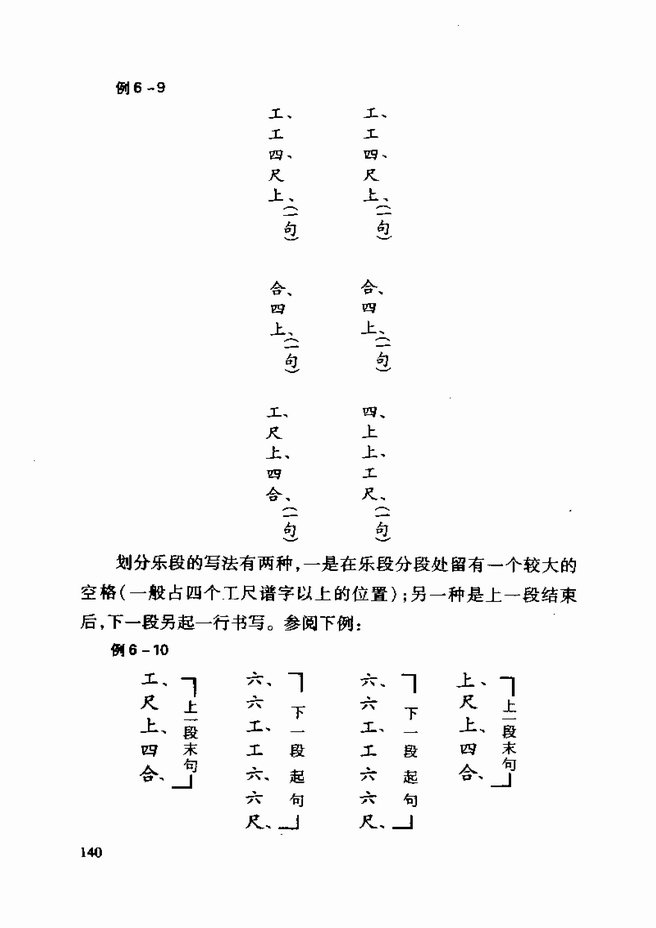 例6-9
工、工四、尺上、(一句) 合、四上、(一句) 四、上上、工尺、(一句)
工、工四、尺上、(一句) 合、四上、(一句) 工、尺上、四合、(一句)
划分乐段的写法有两种,一是在乐段分段处留有一个较大的
空格(一般占四个工尺谱字以上的位置);另一种是上一段结束
后,下一段另起一行书写。参阅下例:
例6-10
上一段末句
上、尺上、四合、
下一段起句
六、六工、工六六尺、
下一段起句
六、六工、工六、六尺、
上一段末句
工、尺上、四合、
140